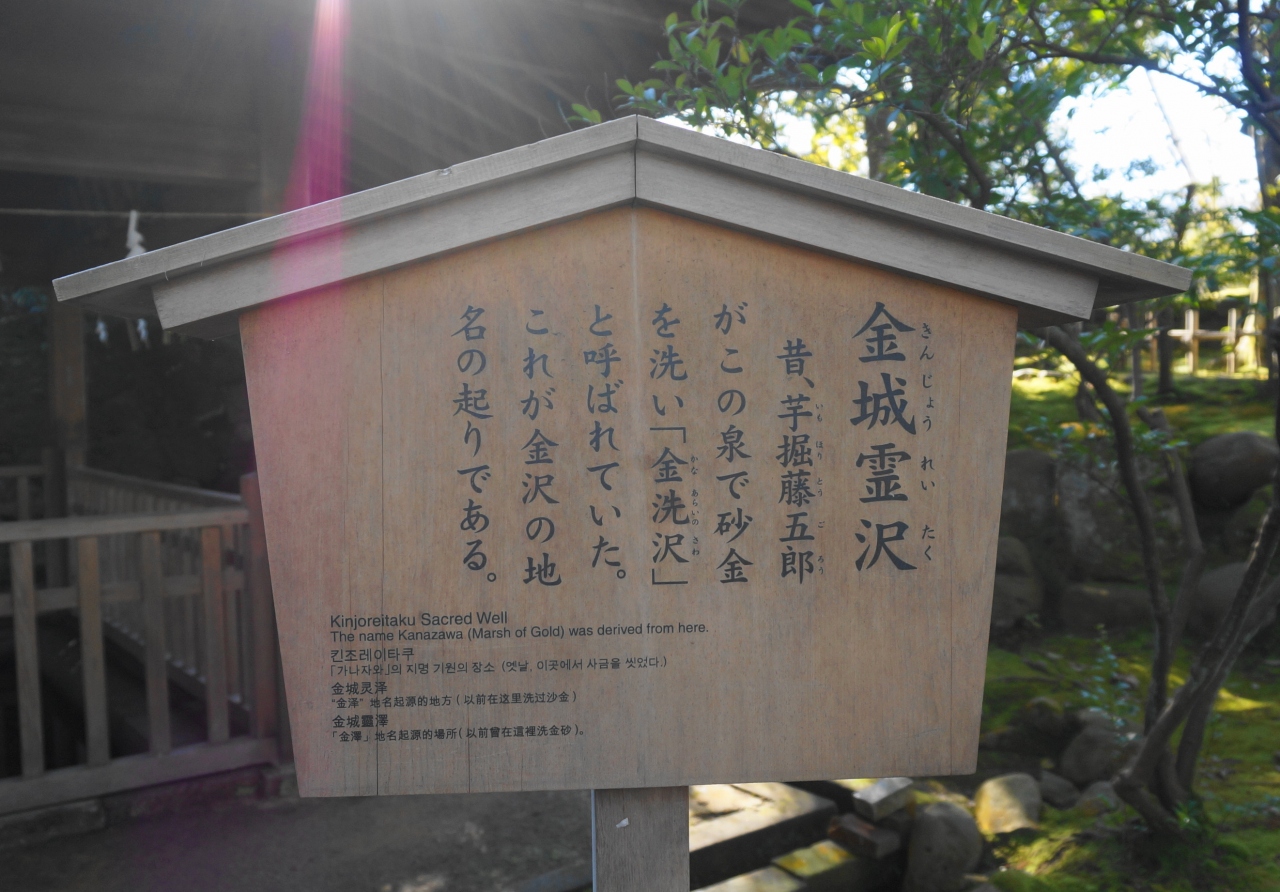 金城霊沢
きんじょうれいたく
昔、芋掘藤五郎
いもほりとうごろう
がこの泉で砂金
を洗い「金洗沢」
かなあらいのさわ
と呼ばれていた。
これが金沢の地
名の起りである。
Kinjoreitaku Sacred Well
The name Kanazawa (Marsh of Gold) was derived from here.
킨조레이타쿠
「가나자와」의 지명 기원의 장소 (옛날, 이곳에서 사금을 씻었다.)
金城灵泽
“金泽” 地名起源的地方 ( 以前在这里洗过沙金 )
金城靈澤
「金澤」地名起源的場所 ( 以前曾在這裡洗金砂 )。